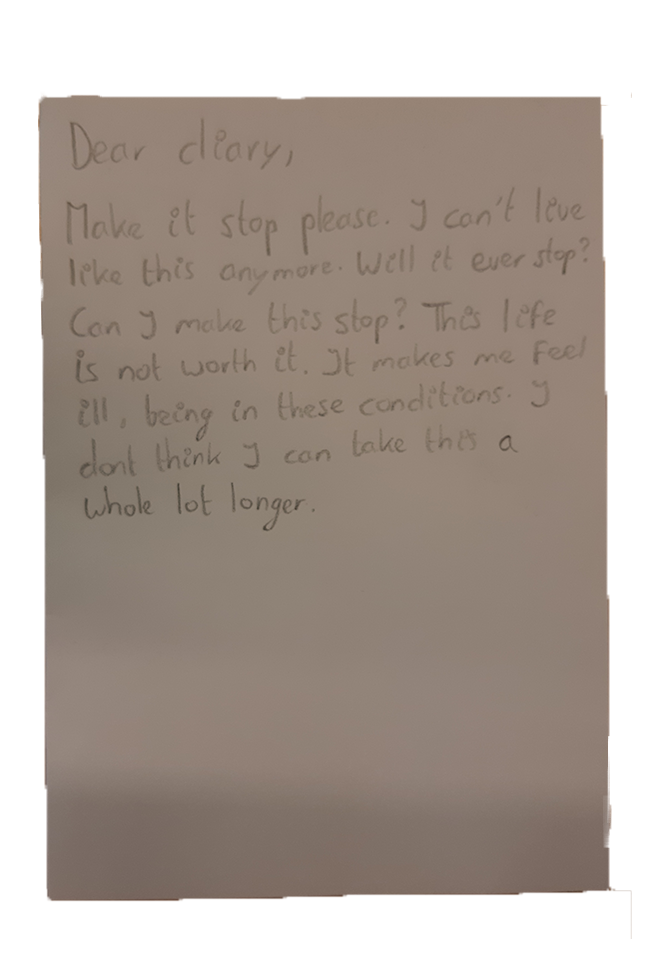 Dear diary,
Make it stop please. I can't live
like this anymore. Will it ever stop?
Can I make this stop? This life
is not worth it. It makes me feel
ill, being in these conditions. I
dont think I can take this a
whole lot longer.